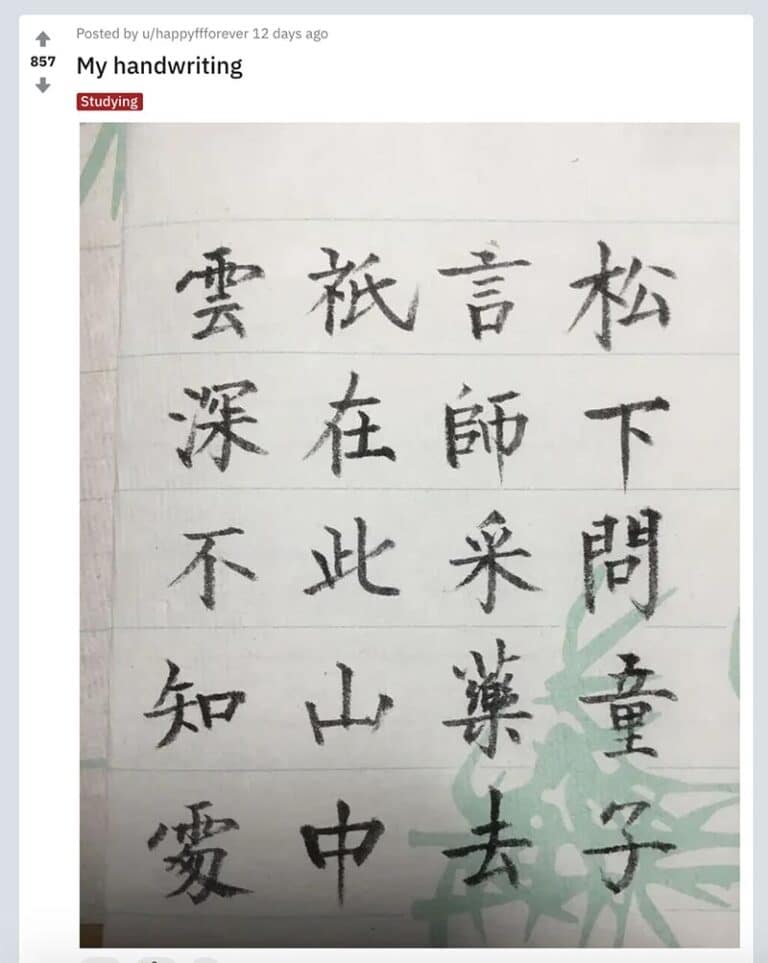 Posted by u/happyffforever 12 days ago
857
My handwriting
Studying
松下問童子
言師采藥去
祇在此山中
雲深不知處